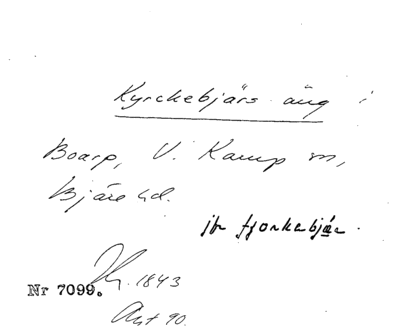 Kyrckebjärs äng i
Boarp, V. Karup sn,
Bjäre hd.
jfr
Nr 7099. 1843
Akt 90.